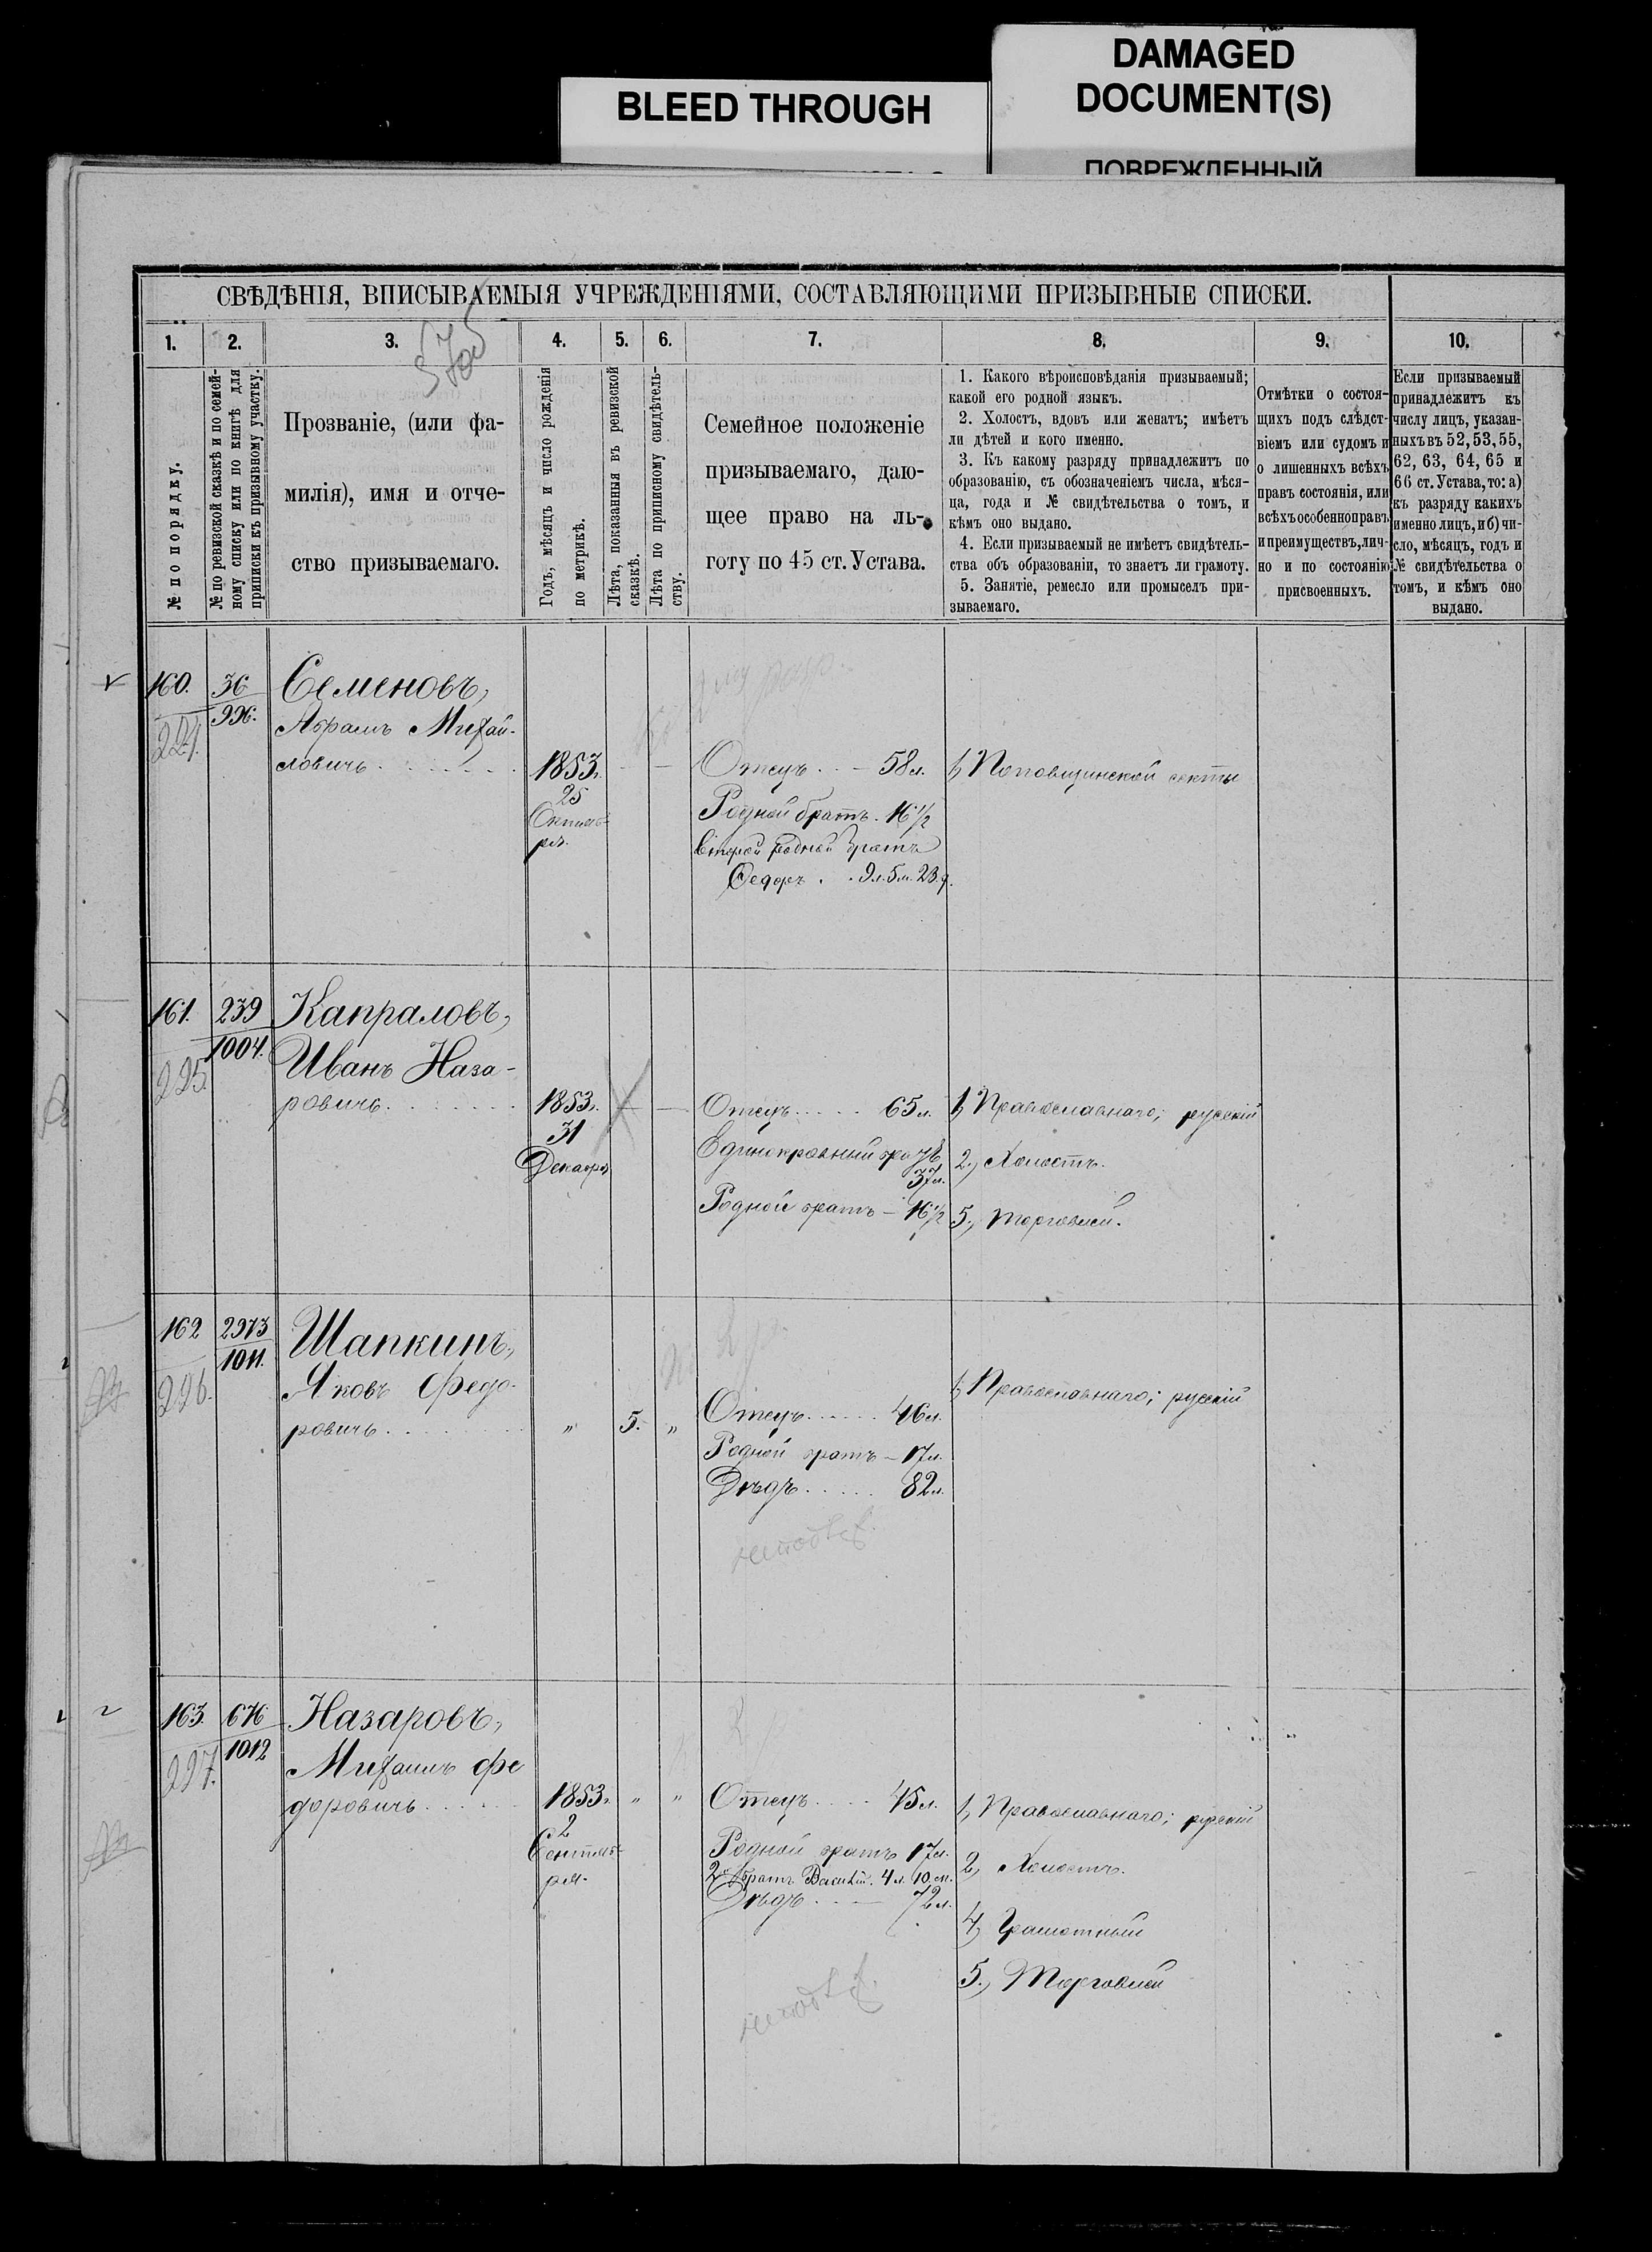 DAMAGED
DOCUMENT(S)
BLEED THROUGH
ПОВРЕЖДЕННЫЙ
СВѢДѢНІЯ, ВПИСЫВАЕМЫЯ УЧРЕЖДЕНІЯМИ, СОСТАВЛЯЮЩИМИ ПРИЗЫВНЫЕ СПИСКИ.
1. 2. 3. 4. 5. 6. 7. 8. 9. 10.
№ по порядку.
№ по ревизской сказкѣ и по семей-
ному списку или по книгѣ для
приписки къ призывному участку.
Прозваніе, (или фа-
милія), имя и отче-
ство призываемаго.
Годъ, мѣсяцъ и число рожденія
по метрикѣ.
Лѣта, показанныя въ ревизской
сказкѣ.
Лѣта по приписному свидѣтель-
ству.
Семейное положеніе
призываемаго, даю-
щее право на ль-
готу по 45 ст. Устава.
1. Какого вѣроисповѣданія призываемый;
какой его родной языкъ.
2. Холостъ, вдовъ или женатъ; имѣетъ
ли дѣтей и кого именно.
3. Къ какому разряду принадлежитъ по
образованію, съ обозначеніемъ числа, мѣся-
ца, года и № свидѣтельства о томъ, и
кѣмъ оно выдано.
4. Если призываемый не имѣетъ свидѣтель-
ства объ образованіи, то знаетъ ли грамоту.
5. Занятіе, ремесло или промыселъ при-
зываемаго.
Отмѣтки о состоя-
щихъ подъ слѣдст-
віемъ или судомъ и
о лишенныхъ всѣхъ
правъ состоянія, или
всѣхъ особенно правъ
и преимуществъ, лич-
но и по состоянію
присвоенныхъ.
Если призываемый
принадлежитъ къ
числу лицъ, указан-
ныхъ въ 52, 53, 55,
62, 63, 64, 65 и
66 ст. Устава, то: а)
къ разряду какихъ
именно лицъ, и б) чи-
сло, мѣсяцъ, годъ и
№ свидѣтельства о
томъ, и кѣмъ оно
выдано.
160. 36 Семеновъ,
996. Абрамъ Михай-
224. ловичъ
1853г.
25
Октяб-
ря.
Отецъ 58 л.
Родной братъ. 16 1/2
Второй родной братъ
Федоръ . . 9 л. 5 м. 23 д.
1, Поповщинской секты
161. 239 Капраловъ,
1004. Иванъ Наза-
225. ровичъ
1853г.
31
Декабря
Отецъ 65 л.
Единокровный братъ
37 л.
Родной братъ - 16 1/2
1, Православнаго; русскій
2, Холостъ.
5, Торговлей.
162 2973 Шапкинъ,
1011. Яковъ Федо-
226. ровичъ
" 5. "
Отецъ 46 л.
Родной братъ - 17 л.
Дѣдъ 82 л.
1, Православнаго; русскій
163. 676 Назаровъ,
1012 Михаилъ Фе
227. доровичъ
1853г. " "
2
Сентяб-
ря.
Отецъ 45 л.
Родной братъ 17 л.
2й братъ Василій. 4 л. 10 м.
Дѣдъ 72 л.
1, Православнаго; русскій
2, Холостъ.
4, Грамотный
5, Торговлей